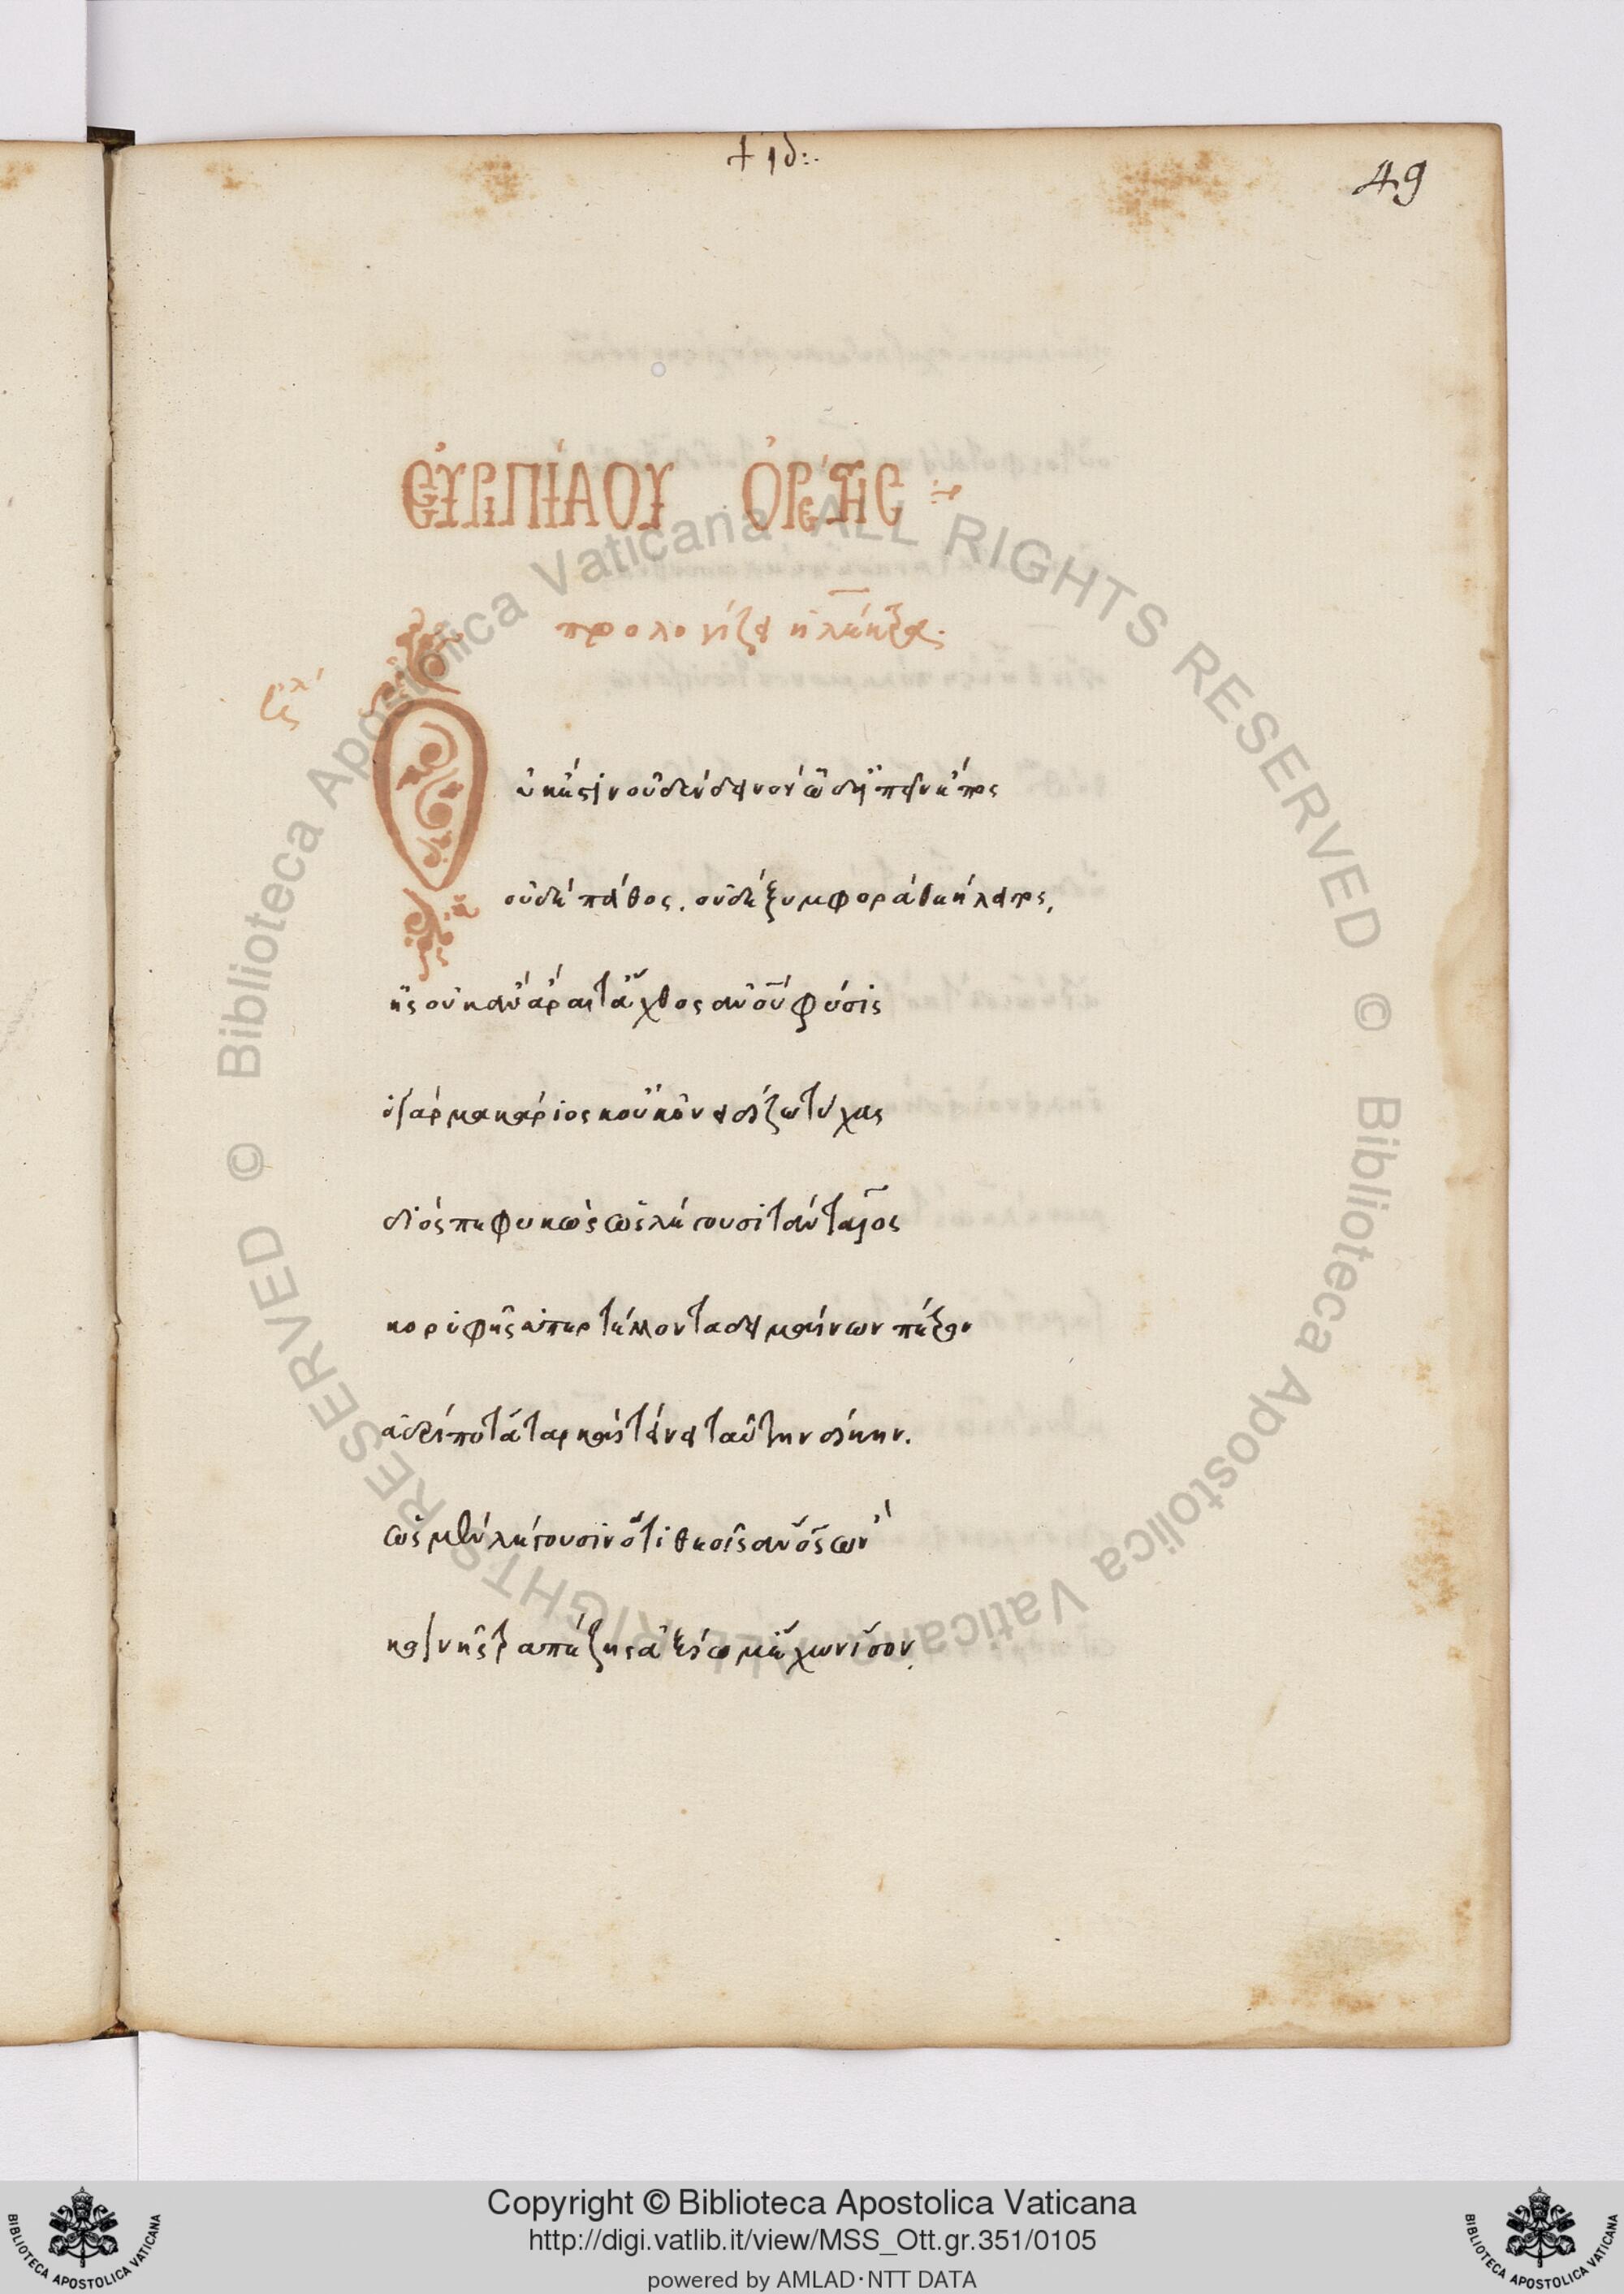 + ιδ:.
49
ΕΥ̓ΡΙΠΊΔΟΥ ὈΡΈΣΤΗΣ :~
προλογίζει ἠλέκτρα.
Οὐκ ἔστιν οὐδὲν δεινὸν ὧδ' εἰπεῖν ἔπος
οὐδὲ πάθος. οὐδὲ ξυμφορὰ θεήλατος,
ἧς οὐκ ἂν ἄραιτ' ἄχθος ἀνου φύσις
ὁ γὰρ μακάριος κοὐκ ὀνειδίζω τύχας
διὸς πεφυκὼς ὡς λέγουσι τάνταλος
κορυφῆς ὑπερτέλλοντα δειμαίνων πέτρον
ἀέρι ποτᾶται καὶ τίνει ταύτην δίκην.
ὡς μὲν λέγουσιν ὅτι θεοῖς ἀνος ὢν
κοινῆς τραπέζης ἀξίωμ' ἔχων ἴσον,
© Biblioteca Apostolica Vaticana ALL RIGHTS RESERVED © Biblioteca Apostolica Vaticana ALL RIGHTS RESERVED
Copyright © Biblioteca Apostolica Vaticana
http://digi.vatlib.it/view/MSS_Ott.gr.351/0105
powered by AMLAD·NTT DATA
BIBLIOTECA APOSTOLICA VATICANA
BIBLIOTECA APOSTOLICA VATICANA